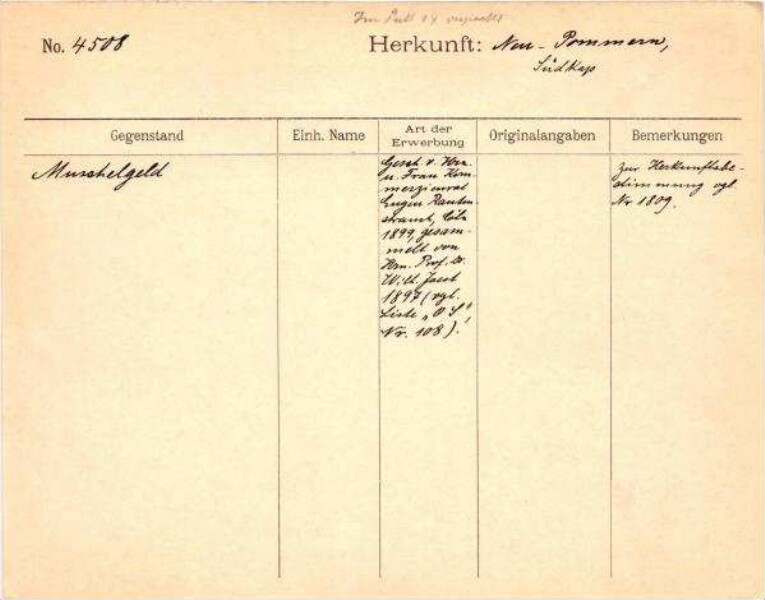 Im Pult 14 verpackt
No. 4508
Herkunft: Neu-Pommern,
Südkap
Gegenstand
Einh. Name
Art der Erwerbung
Originalangaben
Bemerkungen
Muschelgeld
Gesch. v. Hrn.
u. Frau Kom-
merzienrat
Eugen Rauten-
strauch, Cöln
1899, gesam-
melt von
Hrn. Prof. Dr.
1897 (vgl.
Liste „O S",
Nr. 108).
zur Herkunftsbe-
stimmung vgl.
Nr 1809.